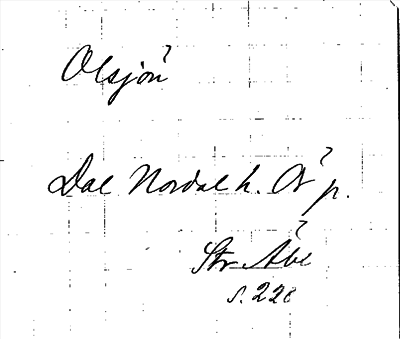 Olsjön
Dal Nordal h. Ör p.
Str Åbe
s. 228